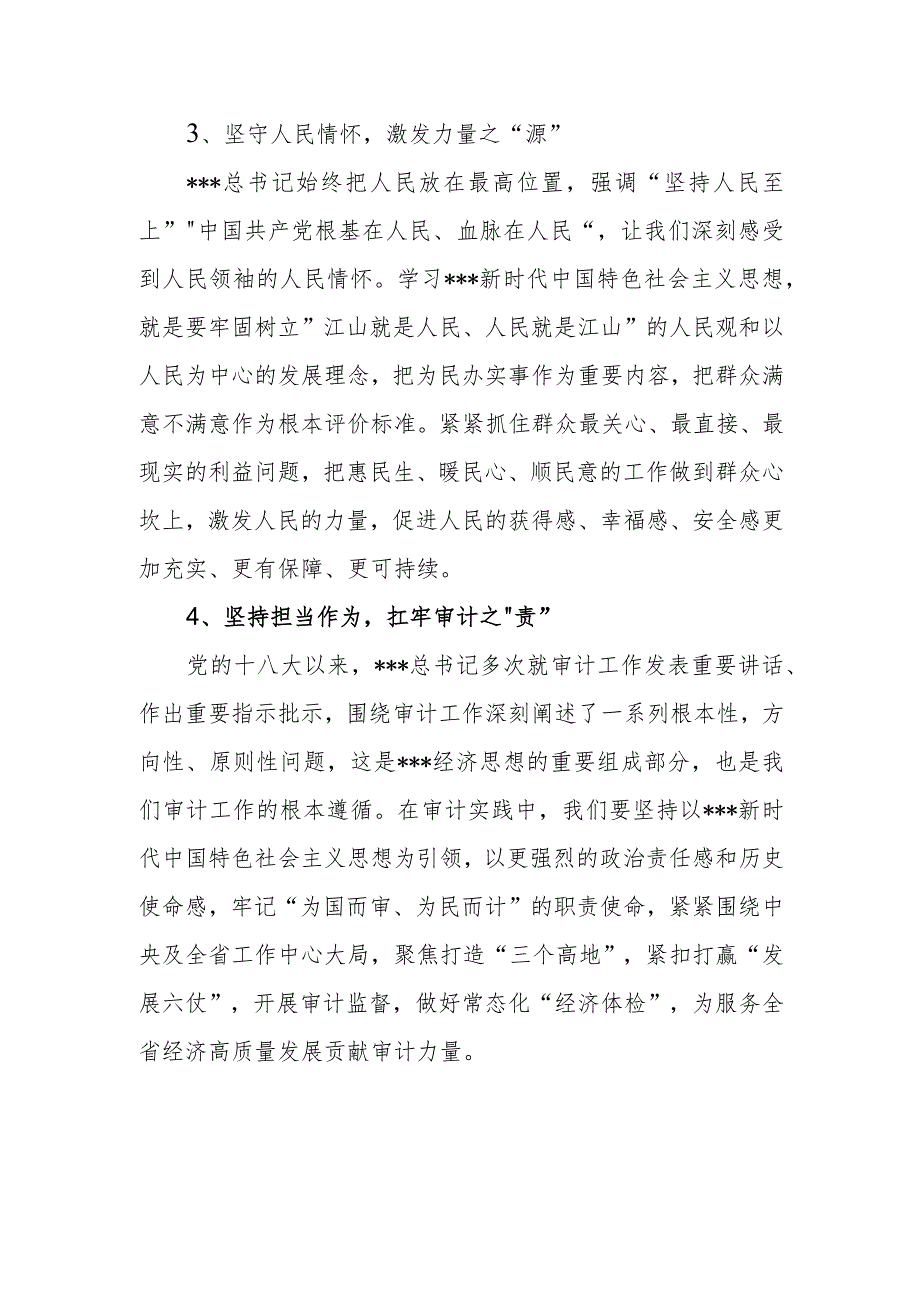 3、坚守人民情怀，激发力量之“源”
***总书记始终把人民放在最高位置，强调“坚持人民至
上”"中国共产党根基在人民、血脉在人民“，让我们深刻感受
到人民领袖的人民情怀。学习***新时代中国特色社会主义思想，
就是要牢固树立”江山就是人民、人民就是江山”的人民观和以
人民为中心的发展理念，把为民办实事作为重要内容，把群众满
意不满意作为根本评价标准。紧紧抓住群众最关心、最直接、最
现实的利益问题，把惠民生、暖民心、顺民意的工作做到群众心
坎上，激发人民的力量，促进人民的获得感、幸福感、安全感更
加充实、更有保障、更可持续。
4、坚持担当作为，扛牢审计之"责”
党的十八大以来，***总书记多次就审计工作发表重要讲话、
作出重要指示批示，围绕审计工作深刻阐述了一系列根本性，方
向性、原则性问题，这是***经济思想的重要组成部分，也是我
们审计工作的根本遵循。在审计实践中，我们要坚持以***新时
代中国特色社会主义思想为引领，以更强烈的政治责任感和历史
使命感，牢记“为国而审、为民而计”的职责使命，紧紧围绕中
央及全省工作中心大局，聚焦打造“三个高地”，紧扣打赢“发
展六仗”，开展审计监督，做好常态化“经济体检”，为服务全
省经济高质量发展贡献审计力量。